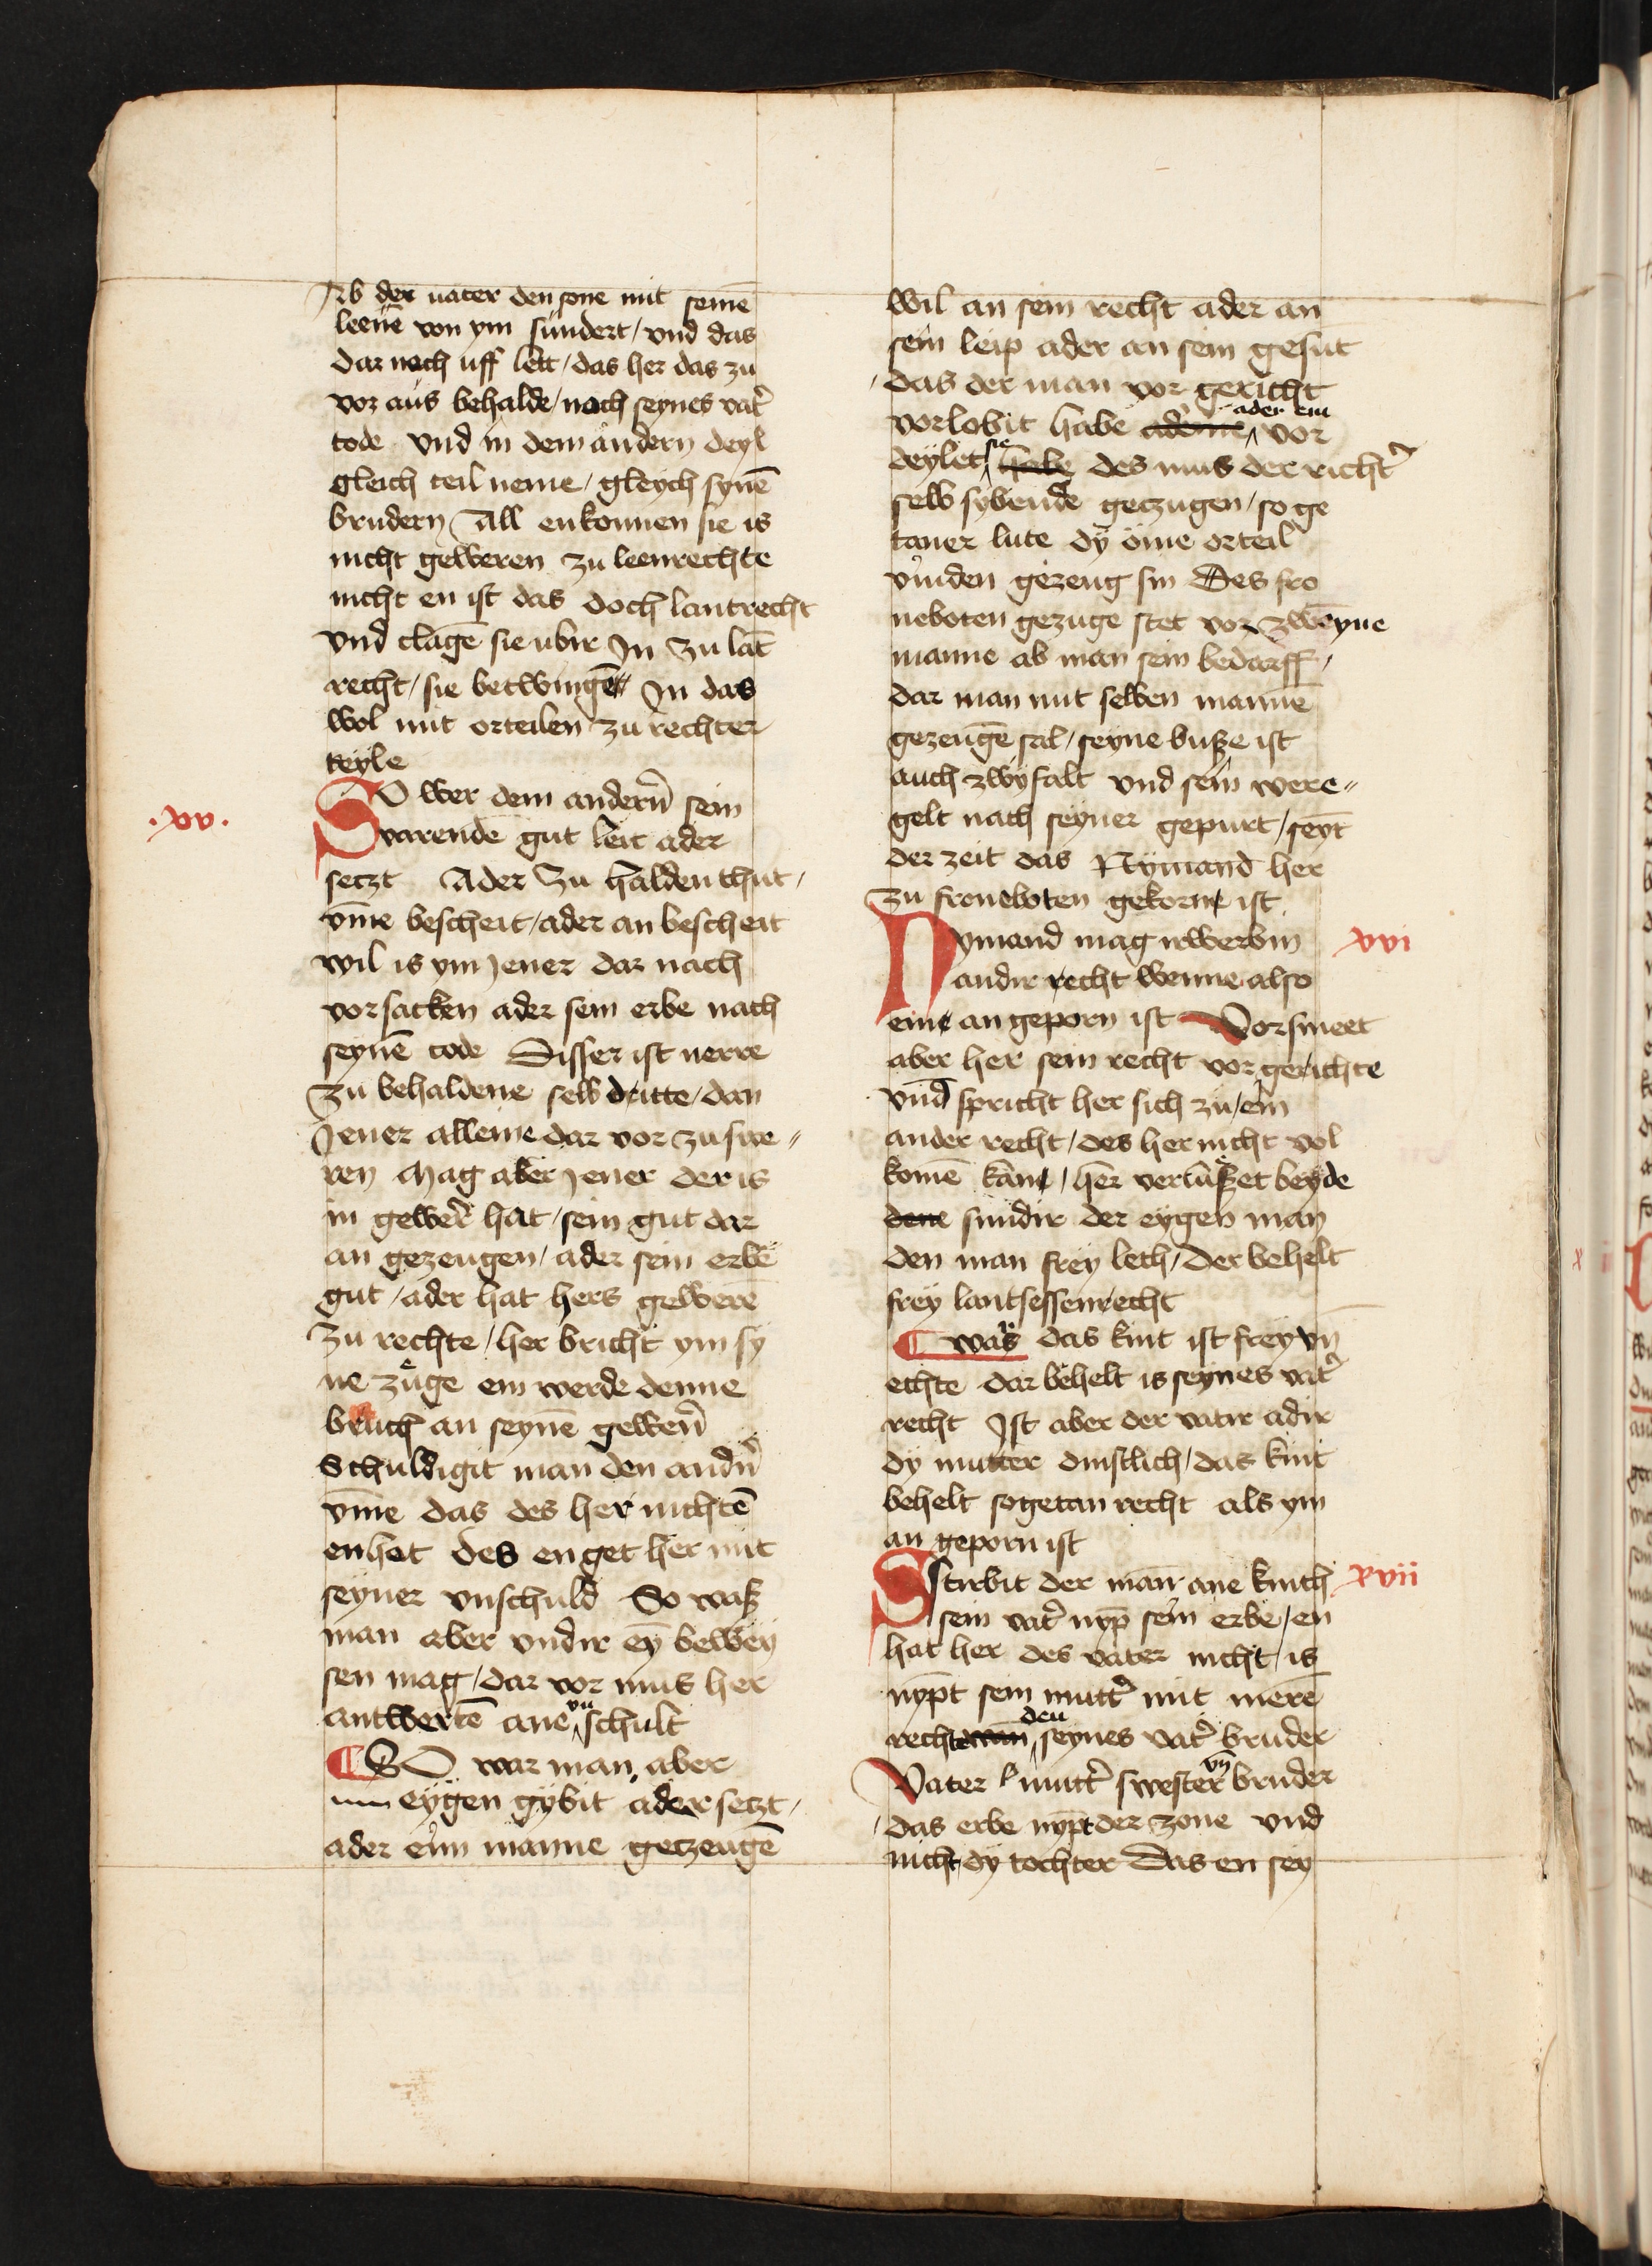 Ab der uater den sone mit seinē
leenē von ym sundert / vnd das
dar nach uff lett / das her das zu
vor aus behalde / nach seynes vat᷑
tode vnd in dem andern deyl
gleich teil neme / gleych synē
brudern All enkonnen sie is
nicht geweren zu leenrechte
nicht en ist das doch lantrecht
vnd clagē sie ubir In zu lāt
recht / sie betwingē In das
wol mit orteilen zu rechter
teyle
.xv.
SO wer dem andern̄ sein
varende gut leit ader
setzt Ader Zu halden thut /
vm̄e bescheit / ader an bescheit
wil is ym jener dar nach
vorsacken ader sein erbe nach
seynē tode Disser ist nerre
zu behaldene selb dritte / dan
Jener alleine dar vor zu swe〃
ren Mag aber jener der is
in gewer᷑ hat / sein gut dar
an gezeugen / ader sein erbe
gut / ader hat hers gewere
zu rechte / her bricht ym sy
ne zuͤge em werde denne
bruch an seynē gewen̄
Schuldigit man den andn̄
vm̄e das des her nichtē
enhat des enget her mit
seyner vnschuld So waß
man aber vndir ey bewey
sen mag / dar vor mus her
antwertē ane vn schult
¶ SO war man aber
eygen gybit ader setzt /
ader eim manne getzeugē
wil an sein recht ader an
sein leip ader an sein gesut
/ das der man vor gericht
vorlobit habe ader ein vor
deylet sie habe des mus der richt᷑
selb sybende getzugen / so ge
taner lute dy ome orteil
vinden gezeug sin Des fro
neboten gezuge stet vor zweyne
manne ab man sein bedarff /
dar man mit selben mannē
gezeugē sal / seyne buße ist
auch zwyfalt vnd sein were〃
gelt nach seyner gepurt / seyt
der zeit das Nymand her
zu froneboten gekorne ist
Nymand mag irwerbin xvi
andir recht wenne also
eme an geporn ist Vorsmeet
aber her sein recht vor gerichte
vnd spricht her sich zu / ein
ander recht / des her nicht vol
komē kan / her verlußet beyde
dene sundir der eygen man
den man frey leth / Der behelt
frey lantsessenrecht
¶ was das kint ist frey vn̄
echte dar behelt is seynes vat᷑
recht Ist aber der vatir adir
dy mutter dinstlich / das kint
behelt sogetan recht als ym
an geporn ist
Stirbit der man ane kinth xvii
sein vat᷑ nyp̄ sein erbe / en
hat her des vater nicht / is
nypt sein mutt᷑ mit mere
rechte den seynes vat᷑ bruder
Vater mutt᷑ swester vn̄ bruder
/ das erbe nypt der zone vnd
nicht dy tochter Das en sey